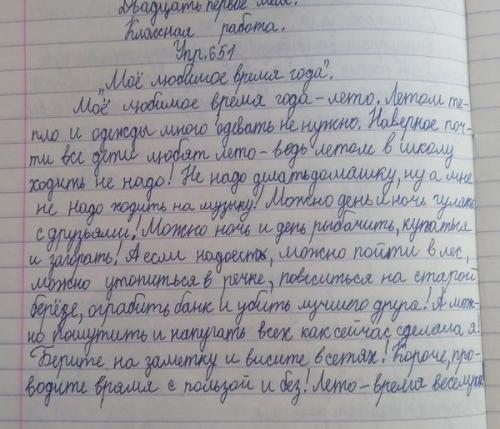 Двадцать первое мая.
Классная работа.
Упр. 651
„Моё любимое время года".
Моё любимое время года - лето. Летом те-
пло и одежды много одевать не нужно. Наверное поч-
ти все дети любят лето - ведь летом в школу
ходить не надо! Не надо делать домашку, ну а мне
не надо ходить на музыку! Можно день и ночь гулять
с друзьями! Можно ночь и день рыбачить, купаться
и загорать! А если надоесть, можно пойти в лес,
можно утопиться в речке, повеситься на старой
берёзе, ограбить банк и убить лучшего друга! А мож-
но пошутить и напугать всех как сейчас сделала я!
Берите на заметку и висите в сетях! Короче, про-
водите время с пользой и без! Лето - время веселухи